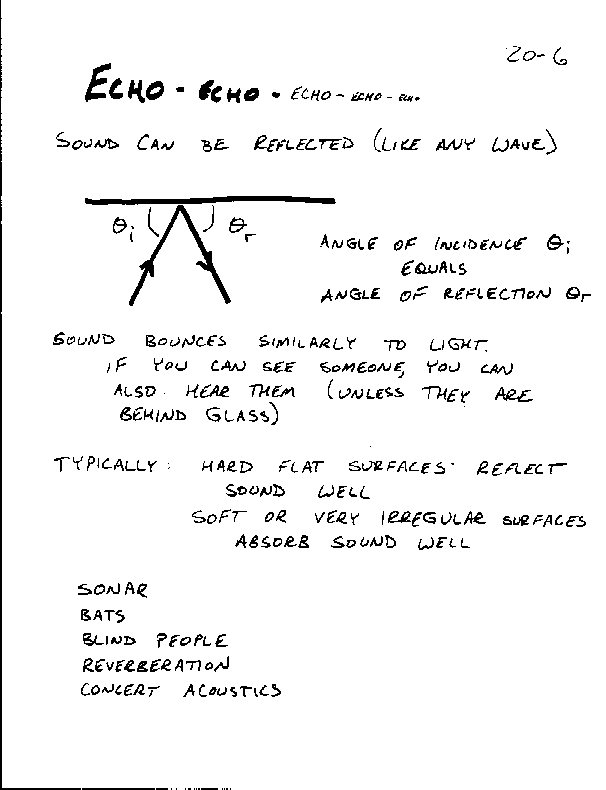 20-6
ECHO - ECHO - ECHO - ECHO - ECHO
SOUND CAN BE REFLECTED (LIKE ANY WAVE)
θi θr
ANGLE OF INCIDENCE θi
EQUALS
ANGLE OF REFLECTION θr
SOUND BOUNCES SIMILARLY TO LIGHT.
IF YOU CAN SEE SOMEONE, YOU CAN
ALSO HEAR THEM (UNLESS THEY ARE
BEHIND GLASS)
TYPICALLY: HARD FLAT SURFACES REFLECT
SOUND WELL
SOFT OR VERY IRREGULAR SURFACES
ABSORB SOUND WELL
SONAR
BATS
BLIND PEOPLE
REVERBERATION
CONCERT ACOUSTICS